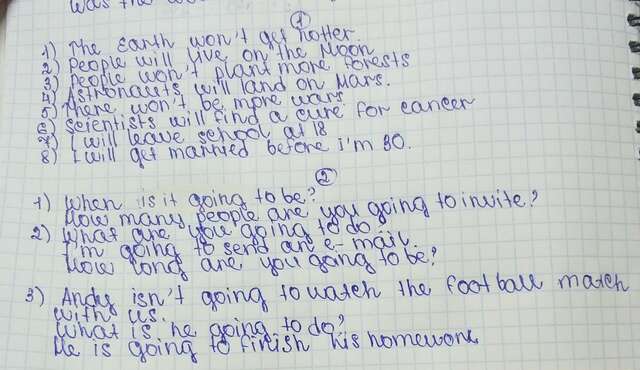 was the
1
1) The Earth won't get hotter
2) People will live on the Moon
3) People won't plant more forests
4) Astronauts will land on Mars.
5) There won't be more wars
6) scientists will find a cure for cancer
7) I will leave school at 18
8) I will get married before i'm 30.
2
1) When is it going to be?
How many people are you going to invite?
2) What are you going to do
I'm going to send an e-mail.
How long are you going to be?
3) Andy isn't going to watch the football match
with us.
What is he going to do?
He is going to finish his homework